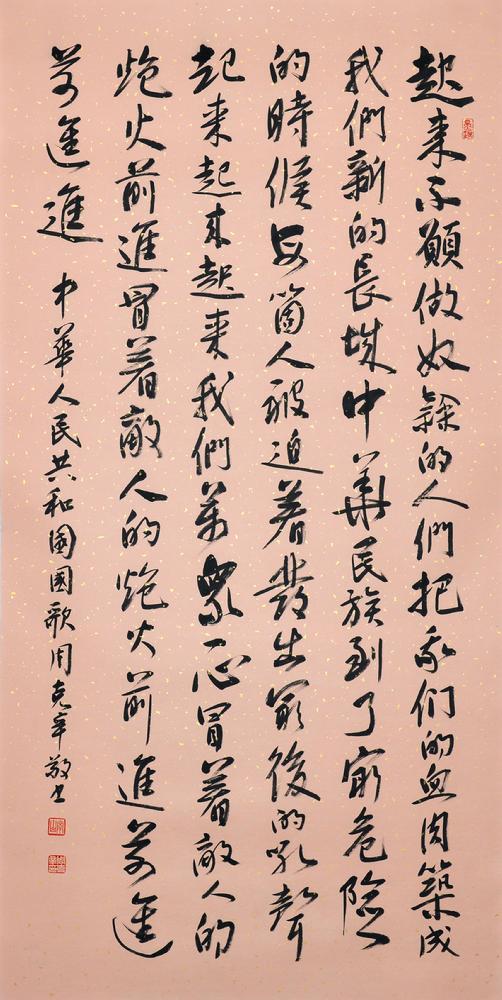 起来不願做奴隸的人們把我们的血肉築成
我們新的長城中華民族到了最危險
的時候每箇人被迫着發出最後的吼聲
起来起来起来我們萬衆一心冒着敵人的
炮火前進冒着敵人的炮火前進前進
前進進
中華人民共和國國歌周克敬书